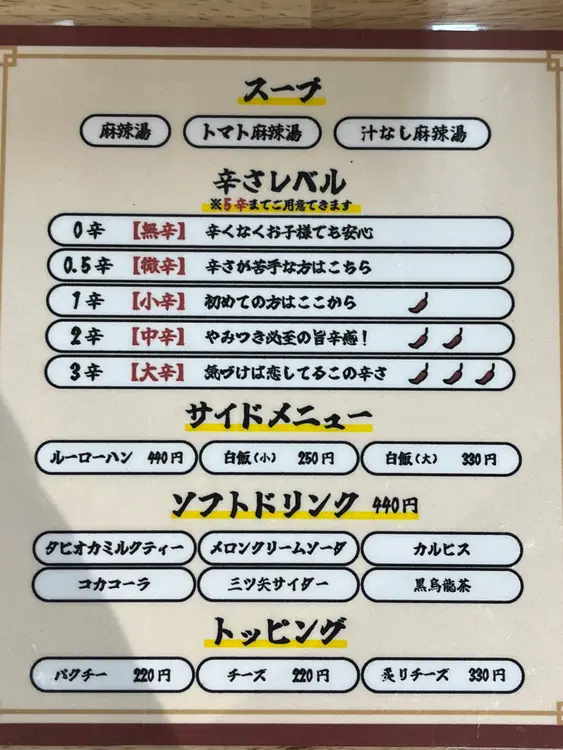 スープ
麻辣湯 トマト麻辣湯 汁なし麻辣湯
辛さレベル
※5辛までご用意できます
0辛 【無辛】 辛くなくお子様でも安心
0.5辛 【微辛】 辛さが苦手な方はこちら
1辛 【小辛】 初めての方はここから
2辛 【中辛】 やみつき必至の旨辛感!
3辛 【大辛】 気づけば恋してるこの辛さ
サイドメニュー
ルーローハン 440円 白飯(小) 250円 白飯(大) 330円
ソフトドリンク 440円
タピオカミルクティー メロンクリームソーダ カルピス
コカコーラ 三ツ矢サイダー 黒烏龍茶
トッピング
パクチー 220円 チーズ 220円 炙りチーズ 330円